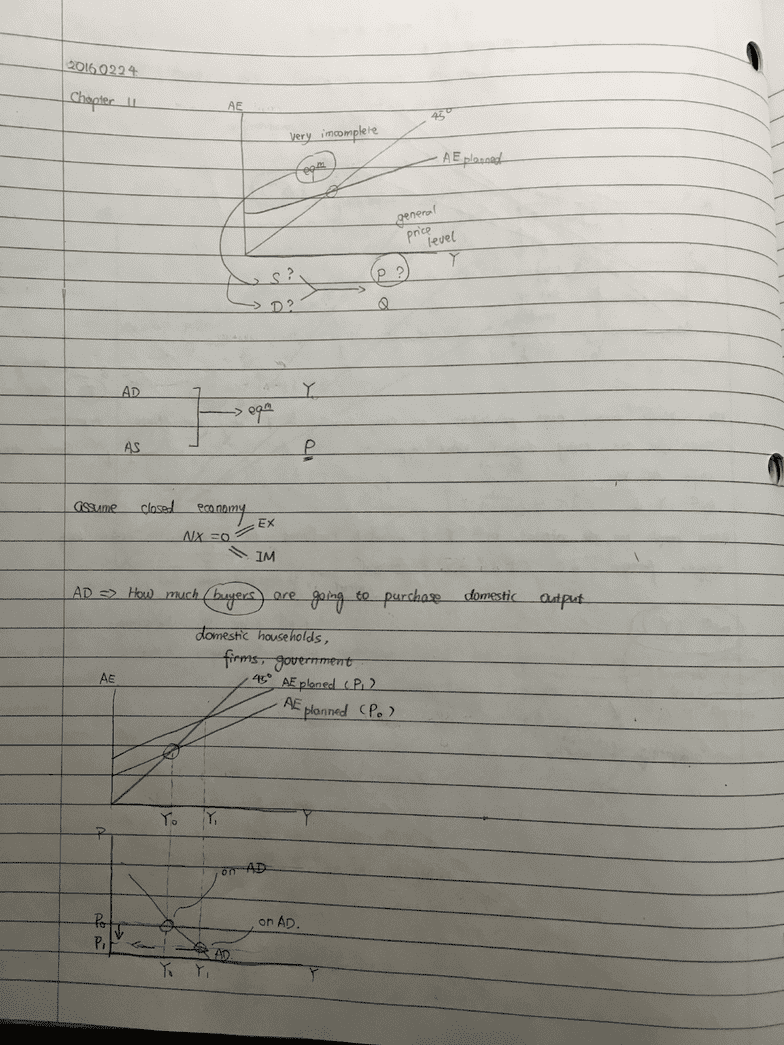 20160224
Chapter 11
AE
45°
very incomplete
AE planned
eqm
general
price
level
Y
S?
P?
D?
Q
AD
Y
eqm
AS
P
assume closed economy
EX
NX = 0
IM
AD => How much buyers are going to purchase domestic output
domestic households,
firms, government
AE
45°
AE planed (P₁)
AE planned (P₀)
Y₀
Y₁
Y
P
on AD
P₀
on AD.
P₁
AD
Y₀
Y₁
Y